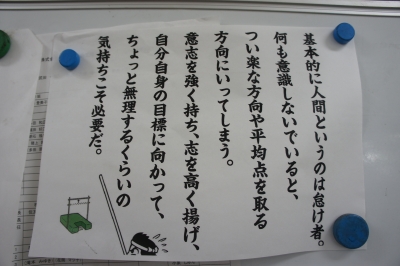 基本的に人間というのは怠け者。
何も意識しないでいると、
つい楽な方向や平均点を取る
方向にいってしまう。
意志を強く持ち、志を高く揚げ、
自分自身の目標に向かって、
ちょっと無理するくらいの
気持ちこそ必要だ。